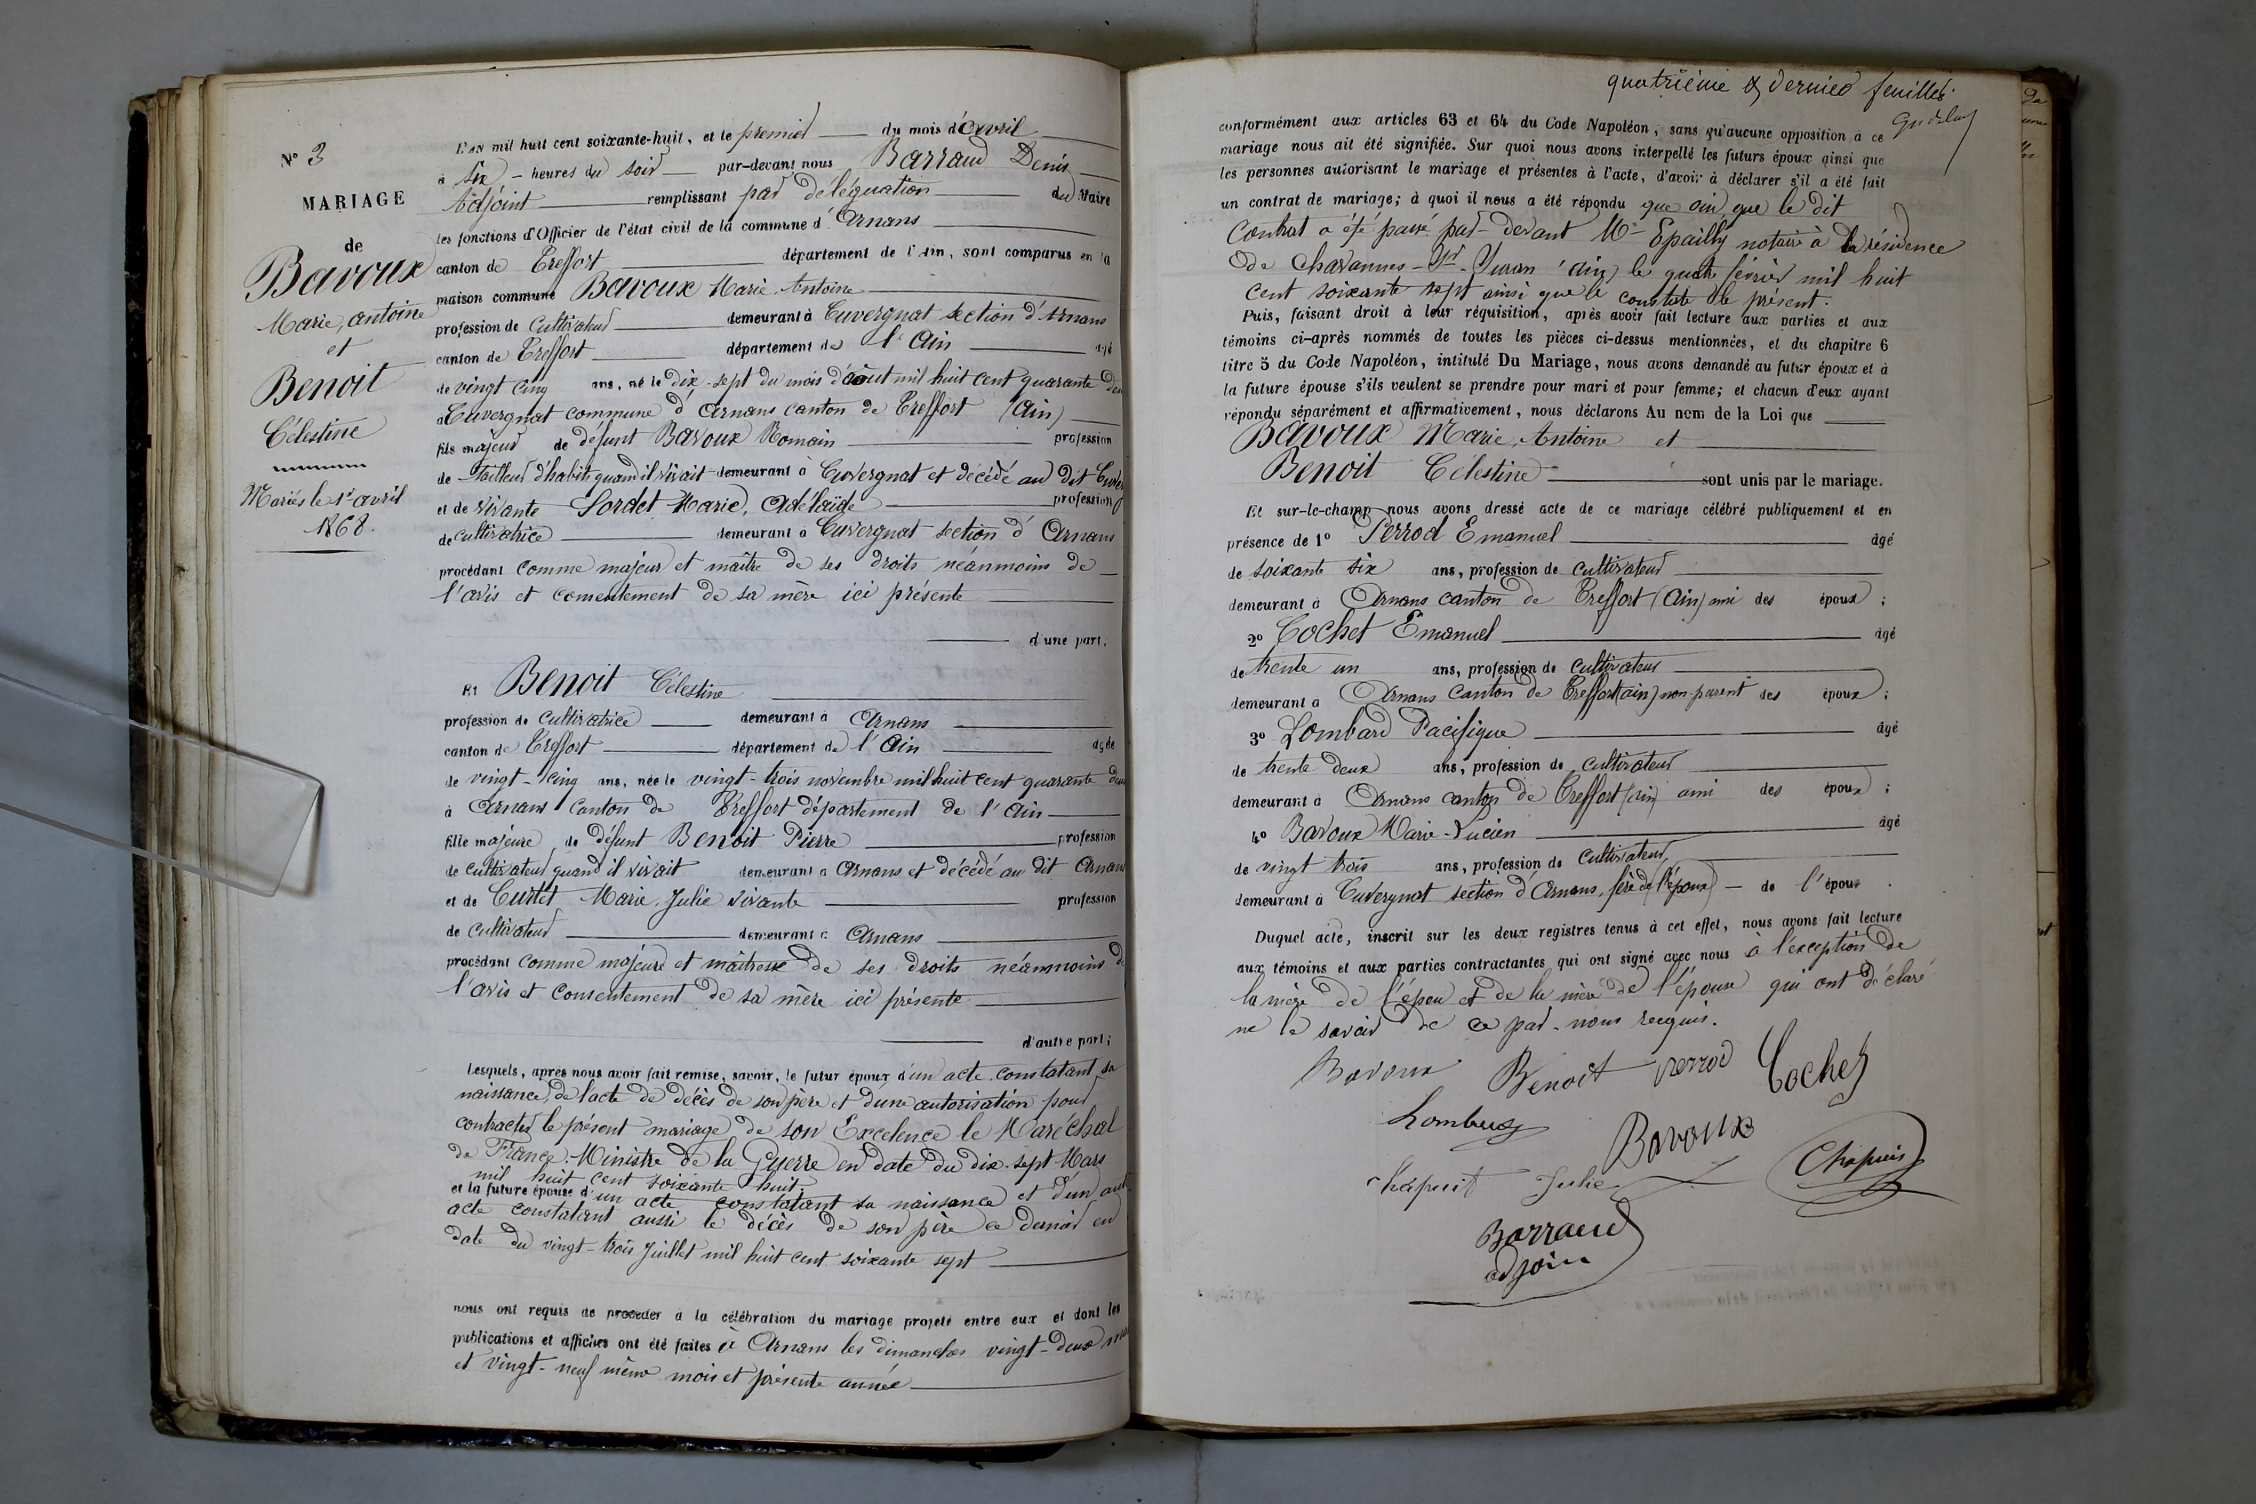 N° 3
MARIAGE
de
Bavoux
Marie, antoine
et
Benoit
Célestine
Mariés le 1er avril
1868.
L'an mil huit cent soixante-huit, et le premier du mois d'avril
à six heures du soir par-devant nous Barraud Denis
Adjoint remplissant par déléguation du Maire
les fonctions d'Officier de l'état civil de la commune d'Arnans
canton de Treffort département de l'Ain, sont comparus en la
maison commune Bavoux Marie Antoine
profession de cultivateur demeurant à Cuvergnat section d'Arnans
canton de Treffort département de l'Ain âgé
de vingt cinq ans, né le dix-sept du mois d'août mil huit cent quarante deux
à Cuvergnat commune d'Arnans canton de Treffort (Ain)
fils majeur de défunt Bavoux Romain profession
de Tailleur d'habits quand il vivait demeurant à Cuvergnat et décédé au dit
et de vivante Sordet Marie, Adélaïde profession
de cultivatrice demeurant à Cuvergnat section d'Arnans
procédant comme majeur et maître de ses droits néanmoins de
l'avis et consentement de sa mère ici présente
d'une part.
Et Benoit Célestine
profession de cultivatrice demeurant à Arnans
canton de Treffort département de l'Ain âgée
de vingt-cinq ans, née le vingt-trois novembre mil huit cent quarante deux
à Arnans canton de Treffort département de l'Ain
fille majeure de défunt Benoit Pierre profession
de cultivateur quand il vivait demeurant à Arnans et décédé au dit Arnans
et de Curtet Marie Julie vivante profession
de cultivateur demeurant à Arnans
procédant comme majeure et maîtresse de ses droits néanmoins de
l'avis et consentement de sa mère ici présente
d'autre part;
Lesquels, après nous avoir fait remise, savoir, le futur époux d'un acte constatant sa
naissance, de l'acte de décès de son père et d'une autorisation pour
contracter le présent mariage de son Excelence le Maréchal
de France, Ministre de la Guerre en date du dix-sept Mars
mil huit cent soixante huit.
et la future épouse d'un acte constatant sa naissance et d'un aut
acte constatant aussi le décès de son père ce dernier en
date du vingt-trois Juillet mil huit cent soixante sept
nous ont requis de procéder à la célébration du mariage projeté entre eux et dont les
publications et affiches ont été faites à Arnans les dimanches vingt-deux
et vingt-neuf même mois et présente année
quatrième & dernier feuillet
conformément aux articles 63 et 64 du Code Napoléon, sans qu'aucune opposition à ce
mariage nous ait été signifiée. Sur quoi nous avons interpellé les futurs époux ainsi que
les personnes autorisant le mariage et présentes à l'acte, d'avoir à déclarer s'il a été fait
un contrat de mariage; à quoi il nous a été répondu que oui, que le dit
Contrat a été passé par-devant Me Epailly notaire à la résidence
de Chavannes-Sr-Suran (ain) le quatre février mil huit
cent soixante sept ainsi que le constate le présent.
Puis, faisant droit à leur réquisition, après avoir fait lecture aux parties et aux
témoins ci-après nommés de toutes les pièces ci-dessus mentionnées, et du chapitre 6
titre 5 du Code Napoléon, intitulé Du Mariage, nous avons demandé au futur époux et à
la future épouse s'ils veulent se prendre pour mari et pour femme; et chacun d'eux ayant
répondu séparément et affirmativement, nous déclarons Au nom de la Loi que
Bavoux Marie, Antoine et
Benoit Célestine sont unis par le mariage.
Et sur-le-champ nous avons dressé acte de ce mariage célébré publiquement et en
présence de 1° Perrod Emanuel âgé
de soixante six ans, profession de cultivateur
demeurant à Arnans canton de Treffort (Ain) ami des époux;
2° Cochet Emanuel âgé
de trente un ans, profession de cultivateur
demeurant à Arnans canton de Treffort (ain) non-parent des époux;
3° Lombard Pacifique âgé
de trente deux ans, profession de cultivateur
demeurant à Arnans canton de Treffort (ain) ami des époux;
4° Bavoux Marie-Lucien âgé
de vingt trois ans, profession de cultivateur
demeurant à Cuvergnat section d'Arnans, frère de (l'époux) — de l'époux.
Duquel acte, inscrit sur les deux registres tenus à cet effet, nous avons fait lecture
aux témoins et aux parties contractantes qui ont signé avec nous à l'exception de
la mère de l'épou et de la mère de l'épouse qui ont déclaré
ne le savoir de ce par-nous requis.
Bavoux Benoit Perrod Cochet
Lombard Bavoux
Chapuit Julie Chapuis
Barraud
adjoin